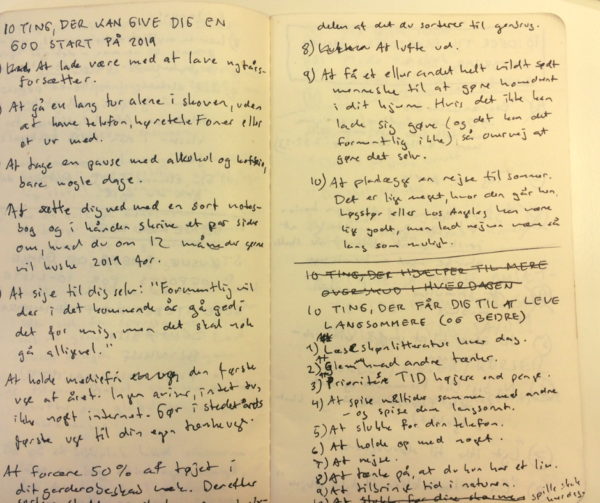 10 TING, DER KAN GIVE DIG EN
GOD START PÅ 2019
At lade være med at lave nytårs-
forsætter.
At gå en lang tur alene i skoven, uden
at have telefon, høretelefoner eller
et ur med.
At tage en pause med alkohol og koffein,
bare nogle dage.
At sætte dig ned med en sort notes-
bog og i hånden skrive et par sider
om, hvad du om 12 måneder gerne
vil huske 2019 for.
At sige til dig selv: "Formentlig vil
der i det kommende år gå ged i
det for mig, men det skal nok
gå alligevel."
At holde mediefri den første
uge af året. Ingen aviser, intet tv,
ikke noget internet. Gør i stedet årets
første uge til din egen tænkeuge.
At forære 50% af tøjet i
dit garderobeskab væk. Derefter
delen af det du sorterer til genbrug.
8) At lufte ud.
9) At få et eller andet helt vildt sødt
menneske til at gøre hovedrent
i dit hjem. Hvis det ikke kan
lade sig gøre (og det kan det
formentlig ikke), så overvej at
gøre det selv.
10) At planlægge en rejse til sommer.
Det er lige meget, hvor den går hen,
Bogstør eller Los Angeles kan være
lige godt, men lad rejsen være så
lang som muligt.
10 TING, DER HJÆLPER TIL MERE
OVERSKUD I HVERDAGEN
10 TING, DER FÅR DIG TIL AT LEVE
LANGSOMMERE (OG BEDRE)
1) At Læse skønlitteratur hver dag.
2) At Glem hvad andre tænker.
3) At Prioritere TID højere end penge.
4) At spise måltider sammen med andre
- og spise dem langsomt.
5) At slukke for din telefon.
6) At holde op med noget.
7) At rejse.
8) At tænke på, at du kun har et liv.
9) At tilbringe tid i naturen.